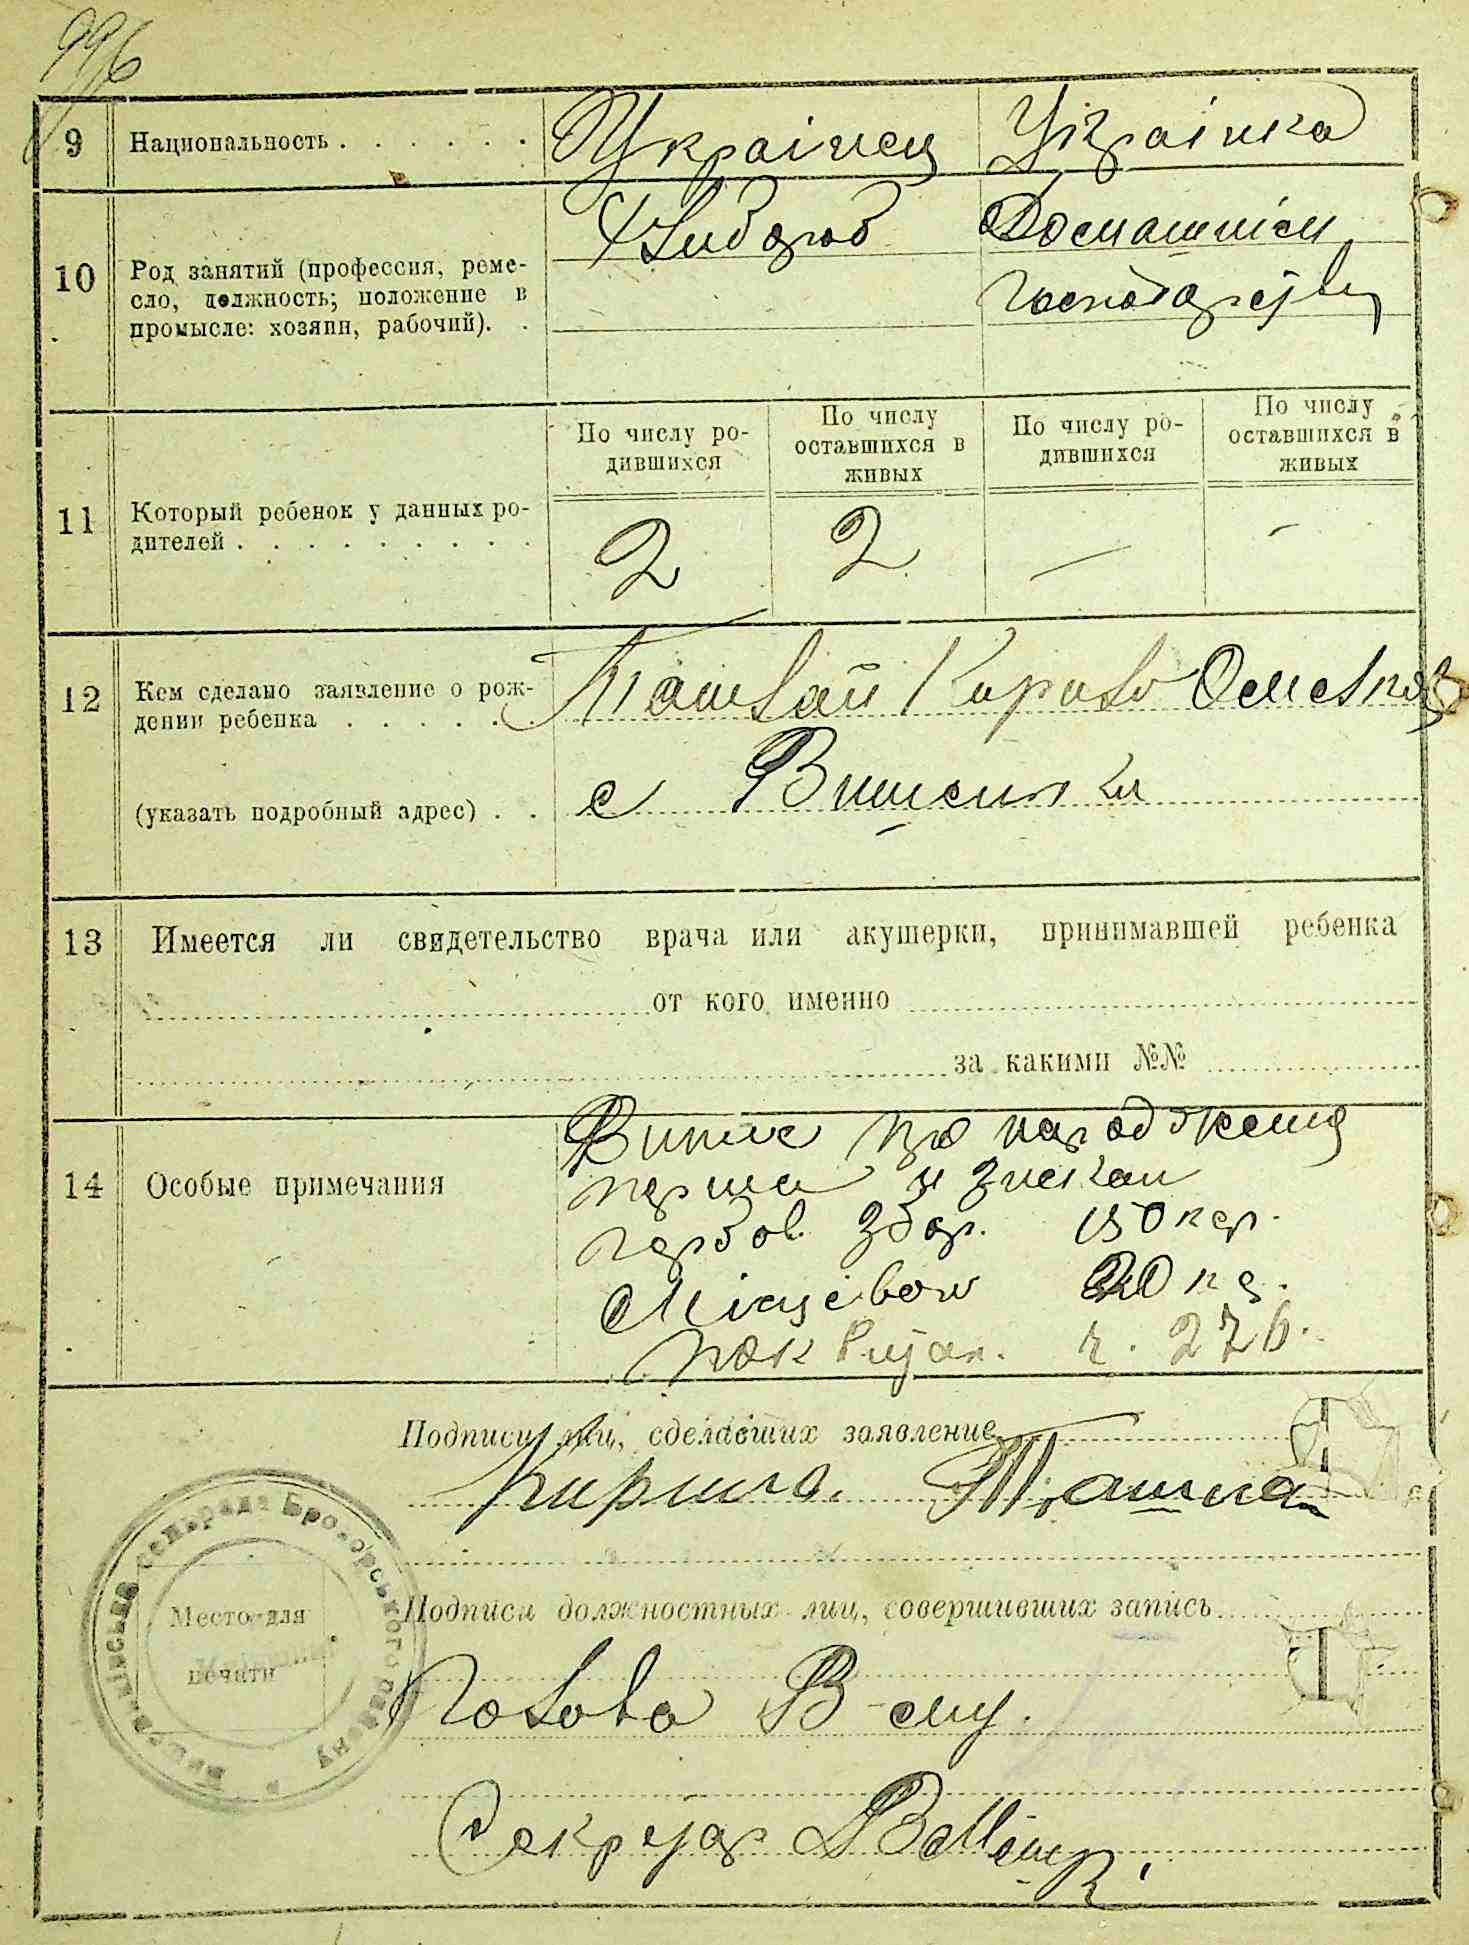 996
9 Национальность . . . . . . Українец Українка
10 Род занятий (профессия, реме-
сло, должность; положение в
промысле: хозяин, рабочий). .
Хлибороб
Домашнім
господарству
11 Который ребенок у данных ро-
дителей . . . . . . . . .
По числу ро-
дившихся
По числу
оставшихся в
живых
По числу ро-
дившихся
По числу
оставшихся в
живых
2 2 — -
12 Кем сделано заявление о рож-
дении ребенка . . . . . .
(указать подробный адрес) . .
Кирило
с Вишеньки
13 Имеется ли свидетельство врача или акушерки, принимавшей ребенка
от кого именно
за какими №№
14 Особые примечания
Випис про народження
перша и зискан
гербов збор. 150 кар.
Місцевого 20 к.
ч. 276.
Подписи лиц, сделавших заявление
Подписи должностных лиц, совершивших запись
Место для
печати
Голова В-
Секретар